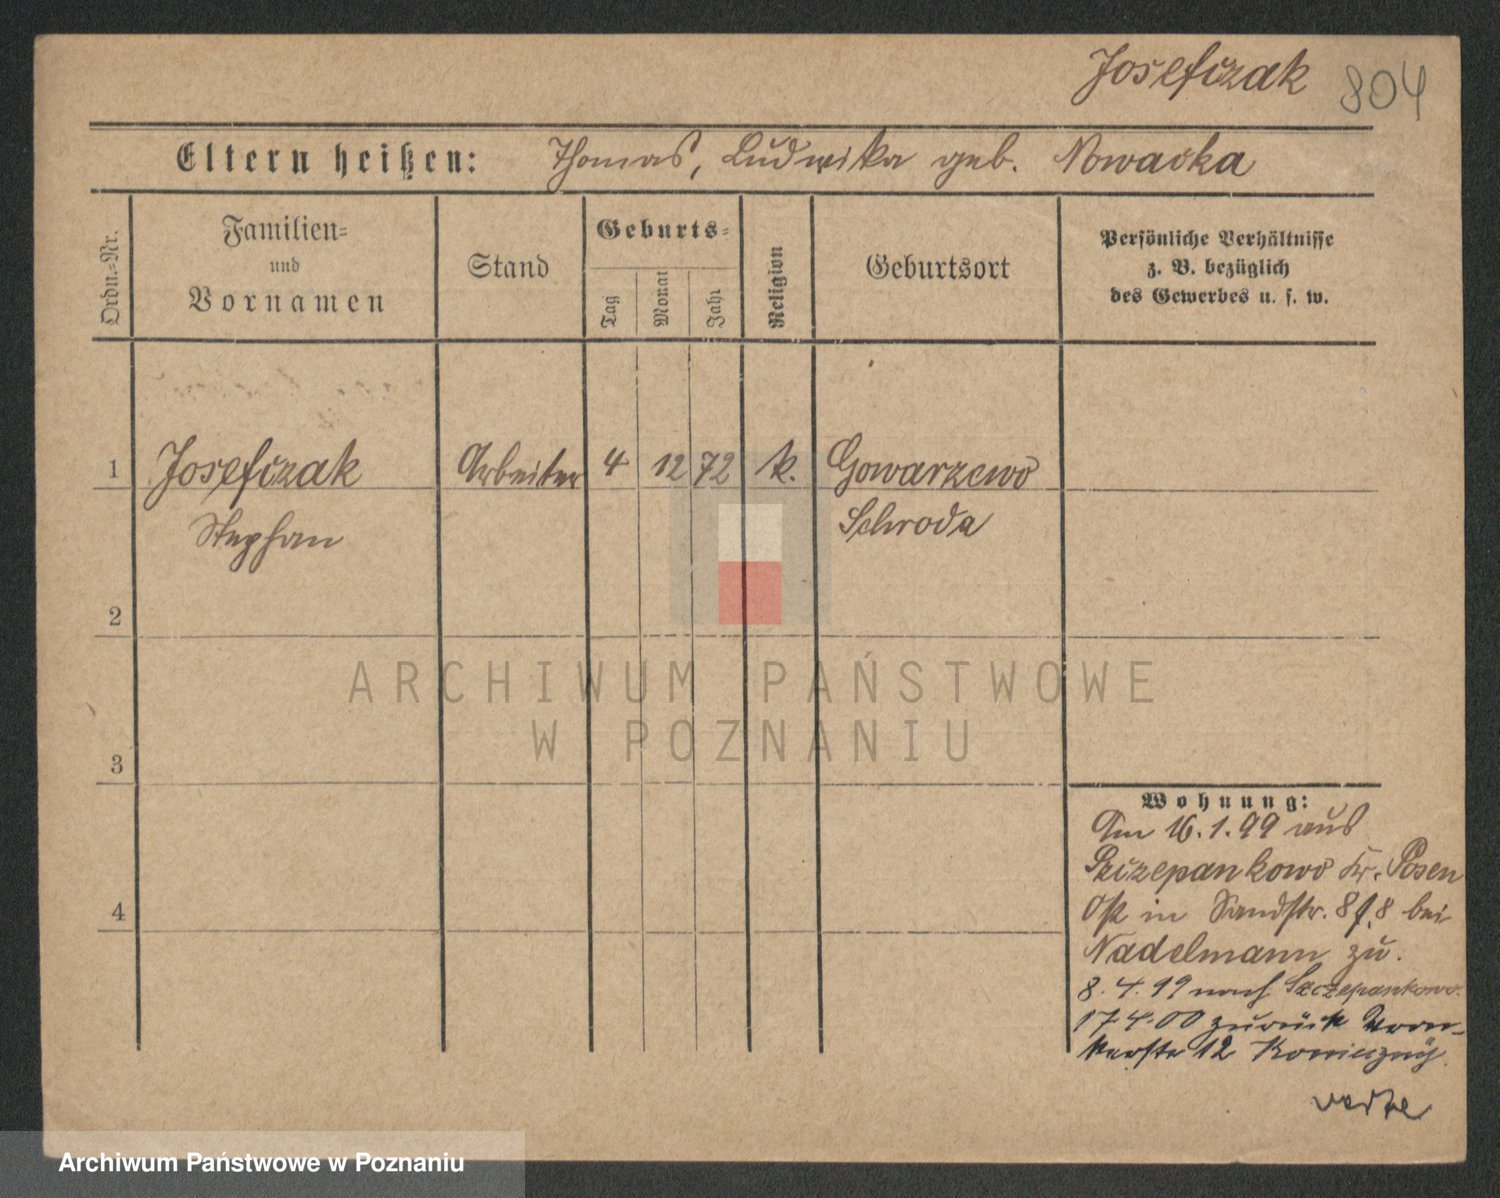 Josefczak 804
Eltern heißen: Thomas, Ludwika geb. Nowacka
Ordn.-Nr.
Familien-
und
Vornamen
Stand
Geburts-
Tag
Monat
Jahr
Religion
Geburtsort
Persönliche Verhältnisse
z. B. bezüglich
des Gewerbes u. s. w.
1 Josefczak Arbeiter 4 12 72 k. Gowarzewo
Stephan Schroda
2
3
4
Wohnung:
Am 16.1.99 aus
Szczepankowo Kr. Posen
Ost in Sandstr. 8 b. 8 bei
Nadelmann zu.
8.4.99 nach Szczepankowo.
17 4.00 zurück Wron-
kerstr 12
verte
ARCHIWUM PAŃSTWOWE
W POZNANIU
Archiwum Państwowe w Poznaniu